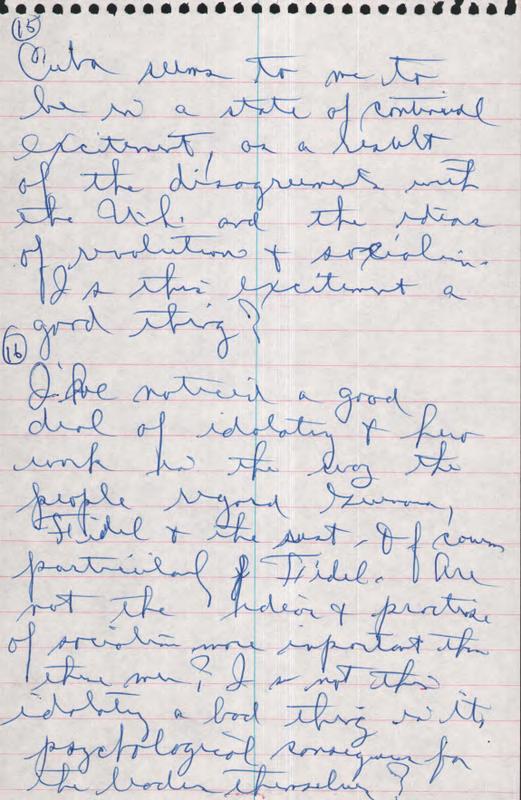 15
Cuba seems to me to
be in a state of continual
excitement, as a result
of the disagreements with
the U.S. and the ideas
of revolution & socialism.
Is this excitement a
good thing?
16
I've noticed a good
deal of idolatry & hero
work in the way the
people regard Guevara,
Fidel & the rest. Of course
particularly Fidel. Are
not the ideas & practise
of socialism more important than
these men? Is not this
idolatry a bad thing in its
psychological consequences for
the leaders themselves?